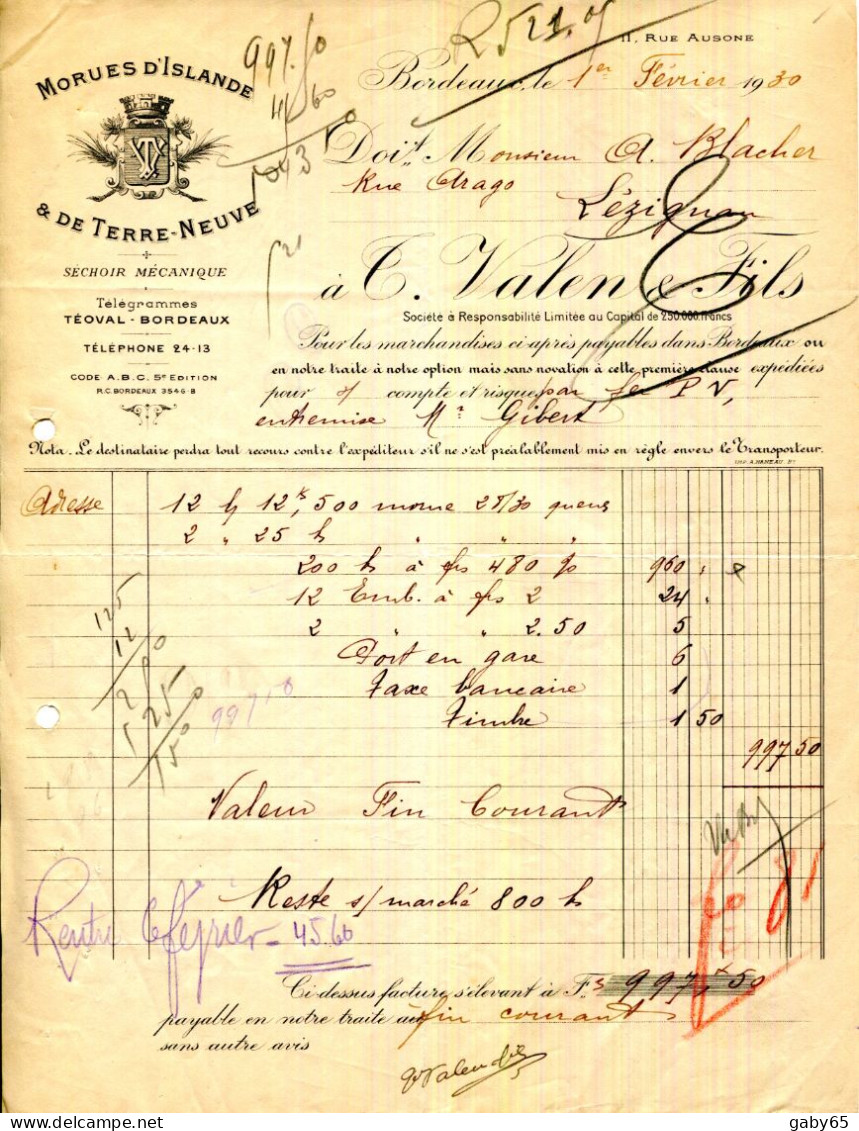 R 521.05
11, RUE AUSONE
997.50
45 60
1043 10
MORUES D'ISLANDE
& DE TERRE-NEUVE
TV
SÉCHOIR MÉCANIQUE
Télégrammes
TÉOVAL - BORDEAUX
TÉLÉPHONE 24-13
CODE A.B.C. 5e EDITION
R.C. BORDEAUX 3546 B
Bordeaux, le 1er Février 1930
Doit Monsieur A. Blacher
Rue Arago
Lézignan
521
à T. Valen & Fils
Société à Responsabilité Limitée au Capital de 250.000 francs
Pour les marchandises ci-après payables dans Bordeaux ou
en notre traite à notre option mais sans novation à cette première clause expédiées
pour s/ compte et risques par fer P V,
entremise Mr Gibert
Nota. Le destinataire perdra tout recours contre l'expéditeur s'il ne s'est préalablement mis en règle envers le Transporteur.
Adresse 12 b 12k,500 morue 25/30 queues
2 " 25 k " " "
200 k à frs 480 % 960 "
12 Emb. à frs 2 24 "
2 " " 2.50 5
Port en gare 6
Taxe bancaire 1
Timbre 1 50
997 50
125
12
250
125
1500
997 50
Valeur Fin Courant
Reste s/ marché 800 k
Rentré le février - 45.60
Ci-dessus facture s'élevant à Fs 997,50
payable en notre traite au fin courant
sans autre avis
T Valen & fils
gaby65